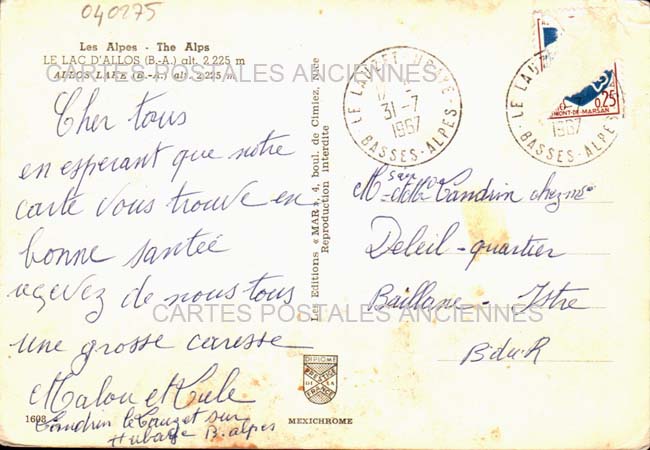 040275
Les Alpes - The Alps
LE LAC D'ALLOS (B.-A.) alt. 2.225 m
ALLOS LAKE (B.-A.) alt. 2.225 m
CARTES POSTALES ANCIENNES
Cher tous
en esperant que notre
carte vous trouve en
bonne santée
reçevez de nous tous
une grosse caresse
Malou et Lule
Candrin le Lauzet sur
Hubaye B. alpes
1603
Les Editions « MAR », 4, boul. de Cimiez, Nice
Reproduction interdite
DIPLOME
PRESTIGE
DE LA
FRANCE
MEXICHROME
LE LAUZET UBAYE
31-7
1967
BASSES-ALPES
LE LAUZ
1967
BASSES-ALPES
0,25
MONT-DE-MARSAN
M et Candrin chez me
Deleil - quartier
Baillane - Istre
B du R
CARTES POSTALES ANCIENNES